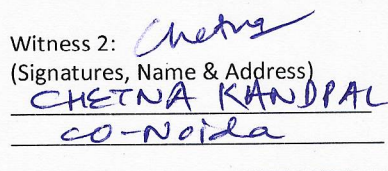 Witness 2: Chetna
(Signatures, Name & Address)
CHETNA KANDPAL
CO-Noida